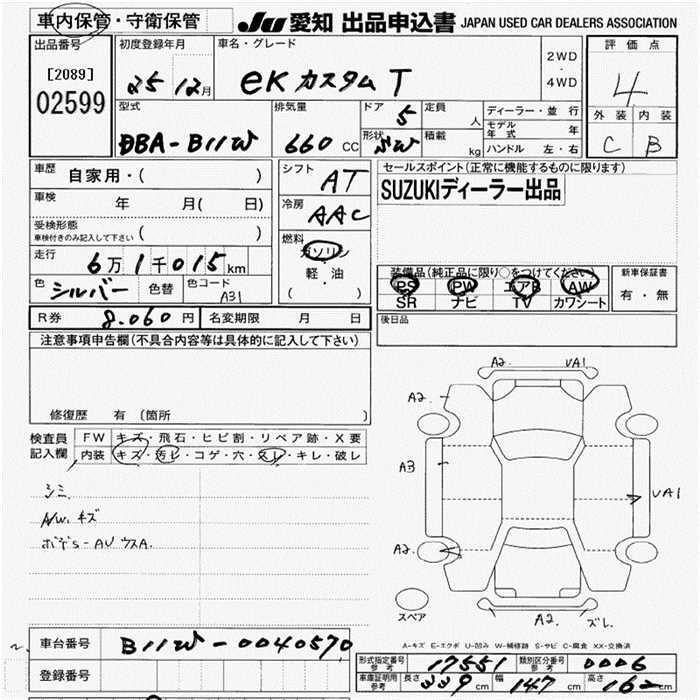 車内保管・守衛保管 JU 愛知 出品申込書 JAPAN USED CAR DEALERS ASSOCIATION
出品番号 初度登録年月 車名・グレード 2WD ・ 4WD 評価点
[2089] 25 12月 eKカスタム T 4
02599
型式 排気量 ドア 5 定員 人 ディーラー・並行 外装 内装
DBA-B11W 660 CC 形状 積載 kg モデル年式 年 C B
ハンドル 左・右
車歴 自家用・( ) シフト AT セールスポイント(正常に機能するものに限ります)
車検 年 月( 日) 冷房 AAC SUZUKIディーラー出品
受検形態
車検付きのみ記入して下さい ( )
燃料 ガソリン
走行 6万1千015km 軽・油
装備品(純正品に限り○をつけてください) 新車保証書
PS PW エアB AW 有・無
SR ナビ TV カワシート
色 シルバー 色替 色コード A31 ( )
R券 8.060円 名変期限 月 日 後日品
注意事項申告欄(不具合内容等は具体的に記入して下さい)
修復歴 有 (箇所 )
検査員 FW キズ・飛石・ヒビ割・リペア跡・X要
記入欄 内装 キズ・汚レ・コゲ・穴・スレ・キレ・破レ
シミ
A/W.キズ
ボデS-AU ウスA.
A2. UA1.
A2.
A3
UA1
A2.
A2. ズレ.
スペア
A-キズ E-エクボ U-凹み W-補修跡 S-サビ C-腐食 XX-交換済
車台番号 B11W-0040570
形式指定番号 参考 17551 類別区分番号 参考 0006
登録番号
車庫証明用 参考 長さ 339cm 幅 147cm 高さ 162cm